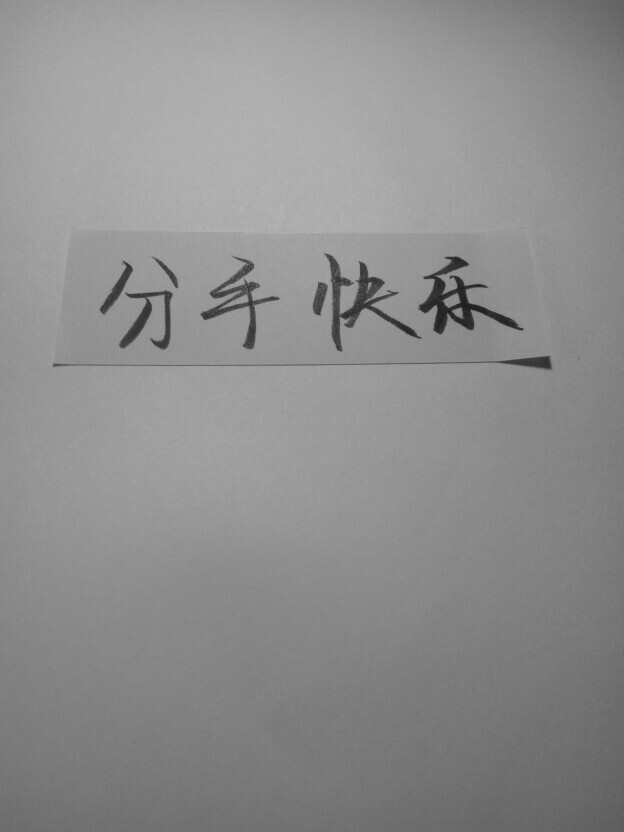 分手快乐